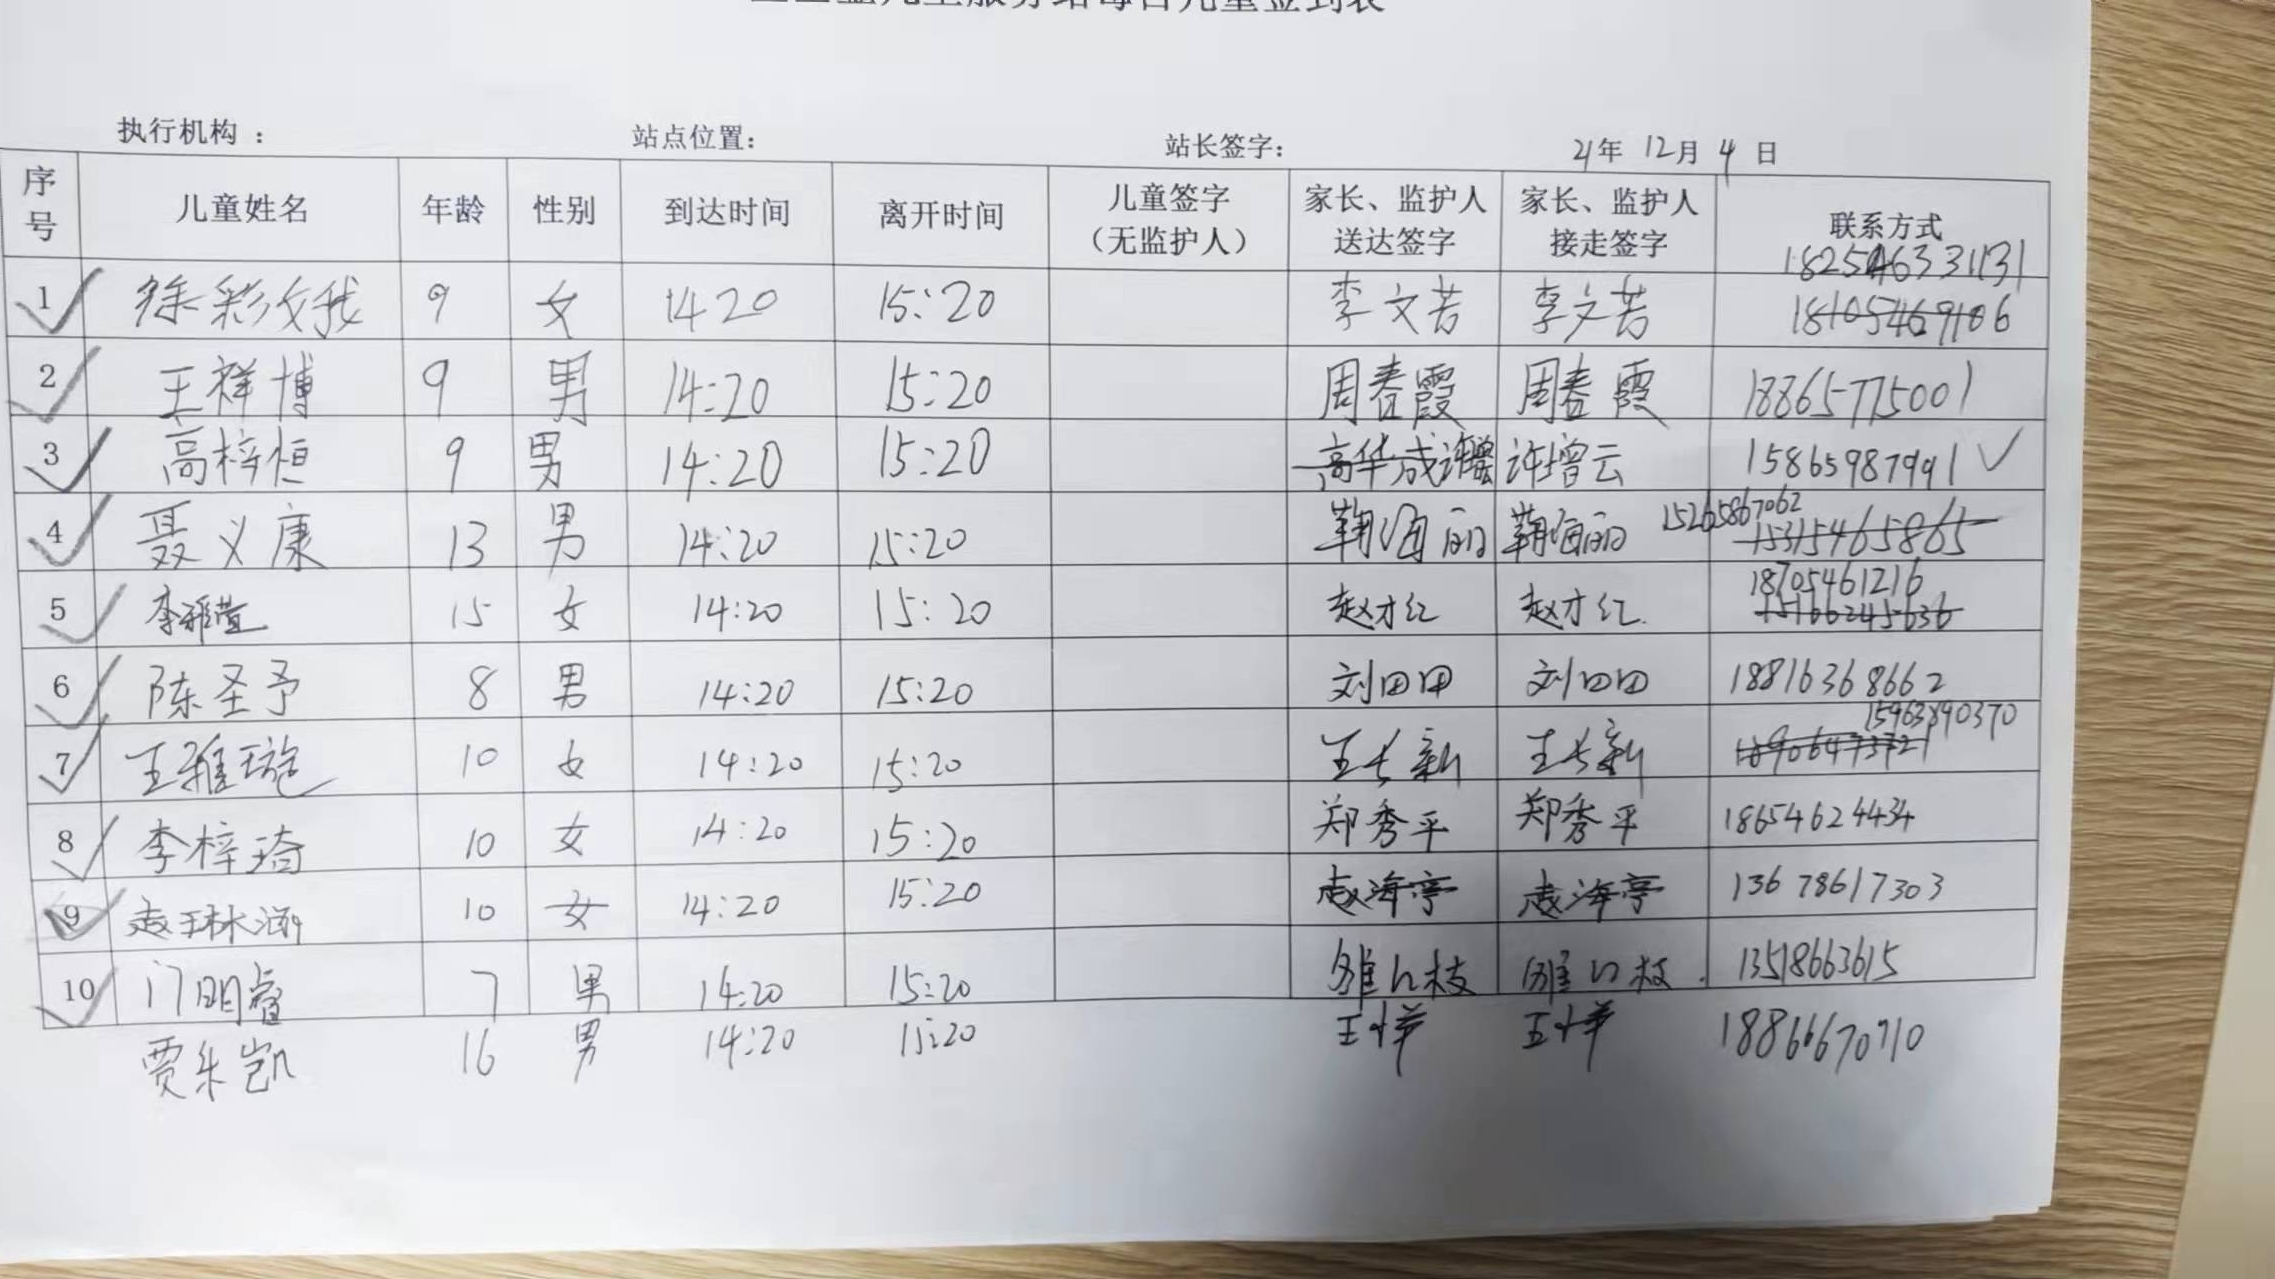 儿童服务站每日儿童签到表
执行机构： 站点位置： 站长签字： 21年 12月 4日
序号 儿童姓名 年龄 性别 到达时间 离开时间 儿童签字（无监护人） 家长、监护人送达签字 家长、监护人接走签字 联系方式
1 徐彩 9 女 1420 15:20 李文芳 李文芳 18105469106
2 王祥博 9 男 14:20 15:20 周春霞 周春霞 18865775001
3 高梓恒 9 男 14:20 15:20 高华成 许增云 15865987991
4 聂义康 13 男 14:20 15:20 鞠海丽 鞠海丽 15265867062 15315465865
5 李雅萱 15 女 14:20 15:20 赵才红 赵才红 18705461216
6 陈圣予 8 男 14:20 15:20 刘田田 刘田田 18816368662
7 王雅璇 10 女 14:20 15:20 王长新 王长新 15963890370
8 李梓琦 10 女 14:20 15:20 郑秀平 郑秀平 18654624434
9 赵琳涵 10 女 14:20 15:20 赵海亭 赵海亭 13678617303
10 门明睿 7 男 14:20 15:20 13518663615
贾朱凯 16 男 14:20 15:20 王样 王样 18866670710